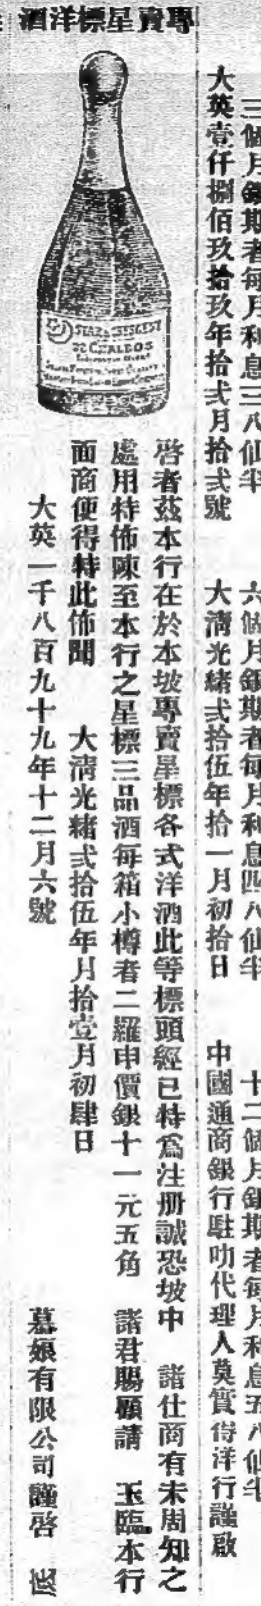 三個月銀期者每月利息三八仙半 六個月銀期者每月利息四八仙半 十二個月銀期者每月利息五八仙半
大英壹仟捌佰玖拾玖年拾弍月拾弍號 大清光緒弍拾伍年拾一月初拾日 中國通商銀行駐叻代理人莫實得洋行謹啟
專賣星標洋酒
啓者茲本行在於本坡專賣星標各式洋酒此等標頭經已特爲注册誠恐坡中 諸仕商有未周知之
處用特佈陳至本行之星標三品酒每箱小樽者二羅申價銀十一元五角 諸君賜顧請 玉臨本行
面商便得特此佈聞 大清光緒弍拾伍年月拾壹月初肆日
大英一千八百九十九年十二月六號 慕娘有限公司謹啓